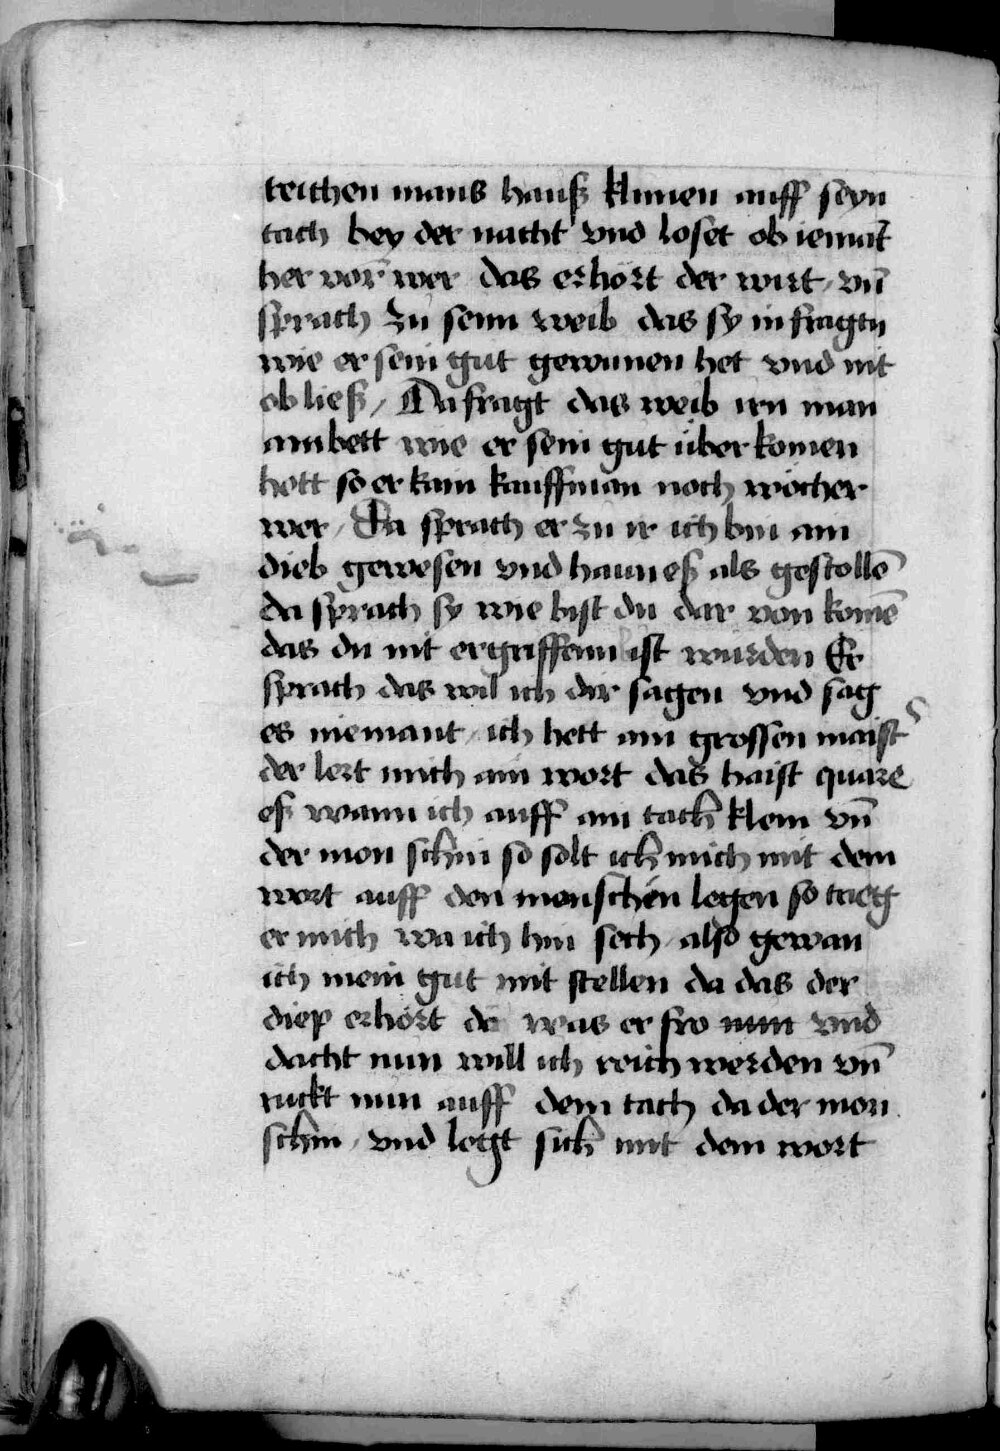 reichen mans hauß klimen auff seyn
tach bey der nacht vnd loset ob iemāt
her vor wer das erhört der wirt / vn̄
sprach zu seim weib das sy in fragtn
wie er sein gut gewunen het vnd nit
ob ließ / Da fragt das weib irn man
am bett wie er sein gut über komen
hett so er kain kauffman noch wöcher
wer / Da sprach er zu ir ich bin ain
dieb gewesen vnd haun eß als gestollē
da sprach sy wie bist du dar von komē
das du nit ergriffenn bist wurden Er
sprach das wil ich dir sagen vnd sag
es niemant / ich hett ain grossen maist
der lert mich ain wort das haist quare
eß wann ich auff ain tach klem vn̄
der mon schin so solt ich mich mit dem
wort auff den menschen legen so traeg
er mich wa ich hin sech / also gewan
ich mein gut mit stellen da das der
diep erhört da was er fro nun vnd
dacht nun will ich reich werden vn̄
ruckt nun auff dem tach da der mon
schin / vnd legt sich mit dem wort